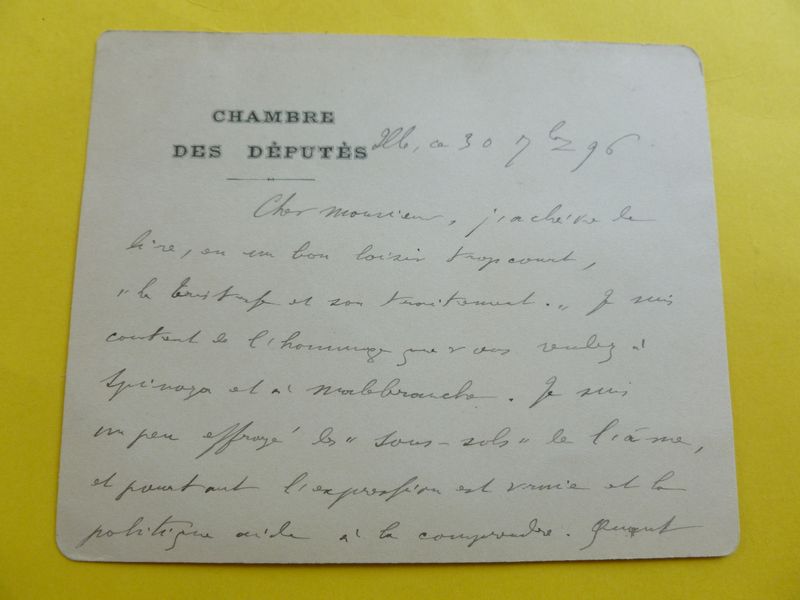 CHAMBRE
DES DÉPUTÉS
ce 30 7bre 96
Cher monsieur, j'achève de
lire, en un bon loisir trop court,
"la Tristesse et son traitement." Je suis
content de l'hommage que vous rendez à
Spinoza et à Malebranche. Je suis
un peu effrayé des "sous-sols" de l'âme,
et pourtant l'expression est vraie et la
politique aide à la comprendre. Quant